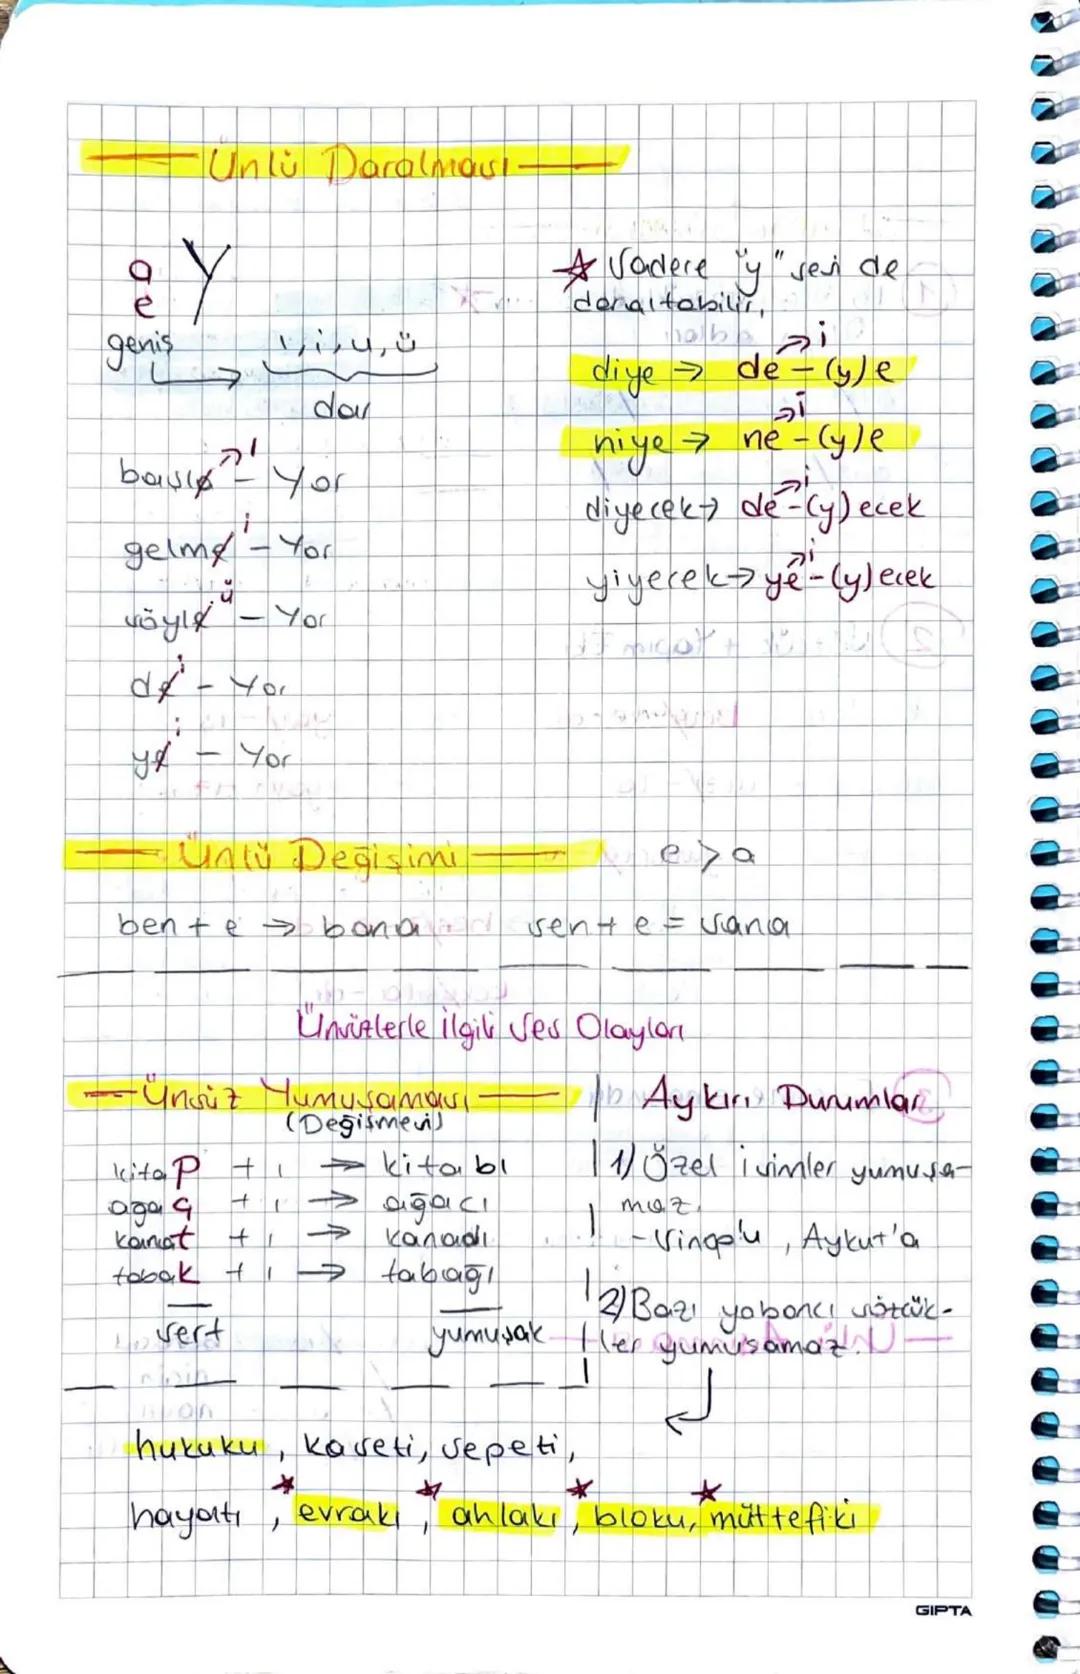 Ünlü Daralması
a
e
Y
geniş
ı, i, u, ü
dar
başla ı - Yor
gelme i - Yor
söyle ü - Yor
de i - Yor
ye i - Yor
☆ Sadece "y" sesi de
daraltabilir.
diye → de i - (y)e
niye → ne i - (y)e
diyecek → de i - (y)ecek
yiyecek → ye i - (y)ecek
Ünlü Değişimi
e > a
ben + e → bana sen + e = sana
Ünsüzlerle İlgili Ses Olayları
Ünsüz Yumuşaması
(Değişmesi)
kitap + ı → kitabı
ağaç + ı → ağacı
kanat + ı → kanadı
tabak + ı → tabağı
sert yumuşak
Aykırı Durumlar
1) Özel isimler yumuşa-
maz.
- Sinop'u, Aykut'a
2) Bazı yabancı sözcük-
ler yumuşamaz.
hukuku, kaseti, sepeti,
hayatı, evrakı, ahlakı, bloku, müttefiki
GIPTA